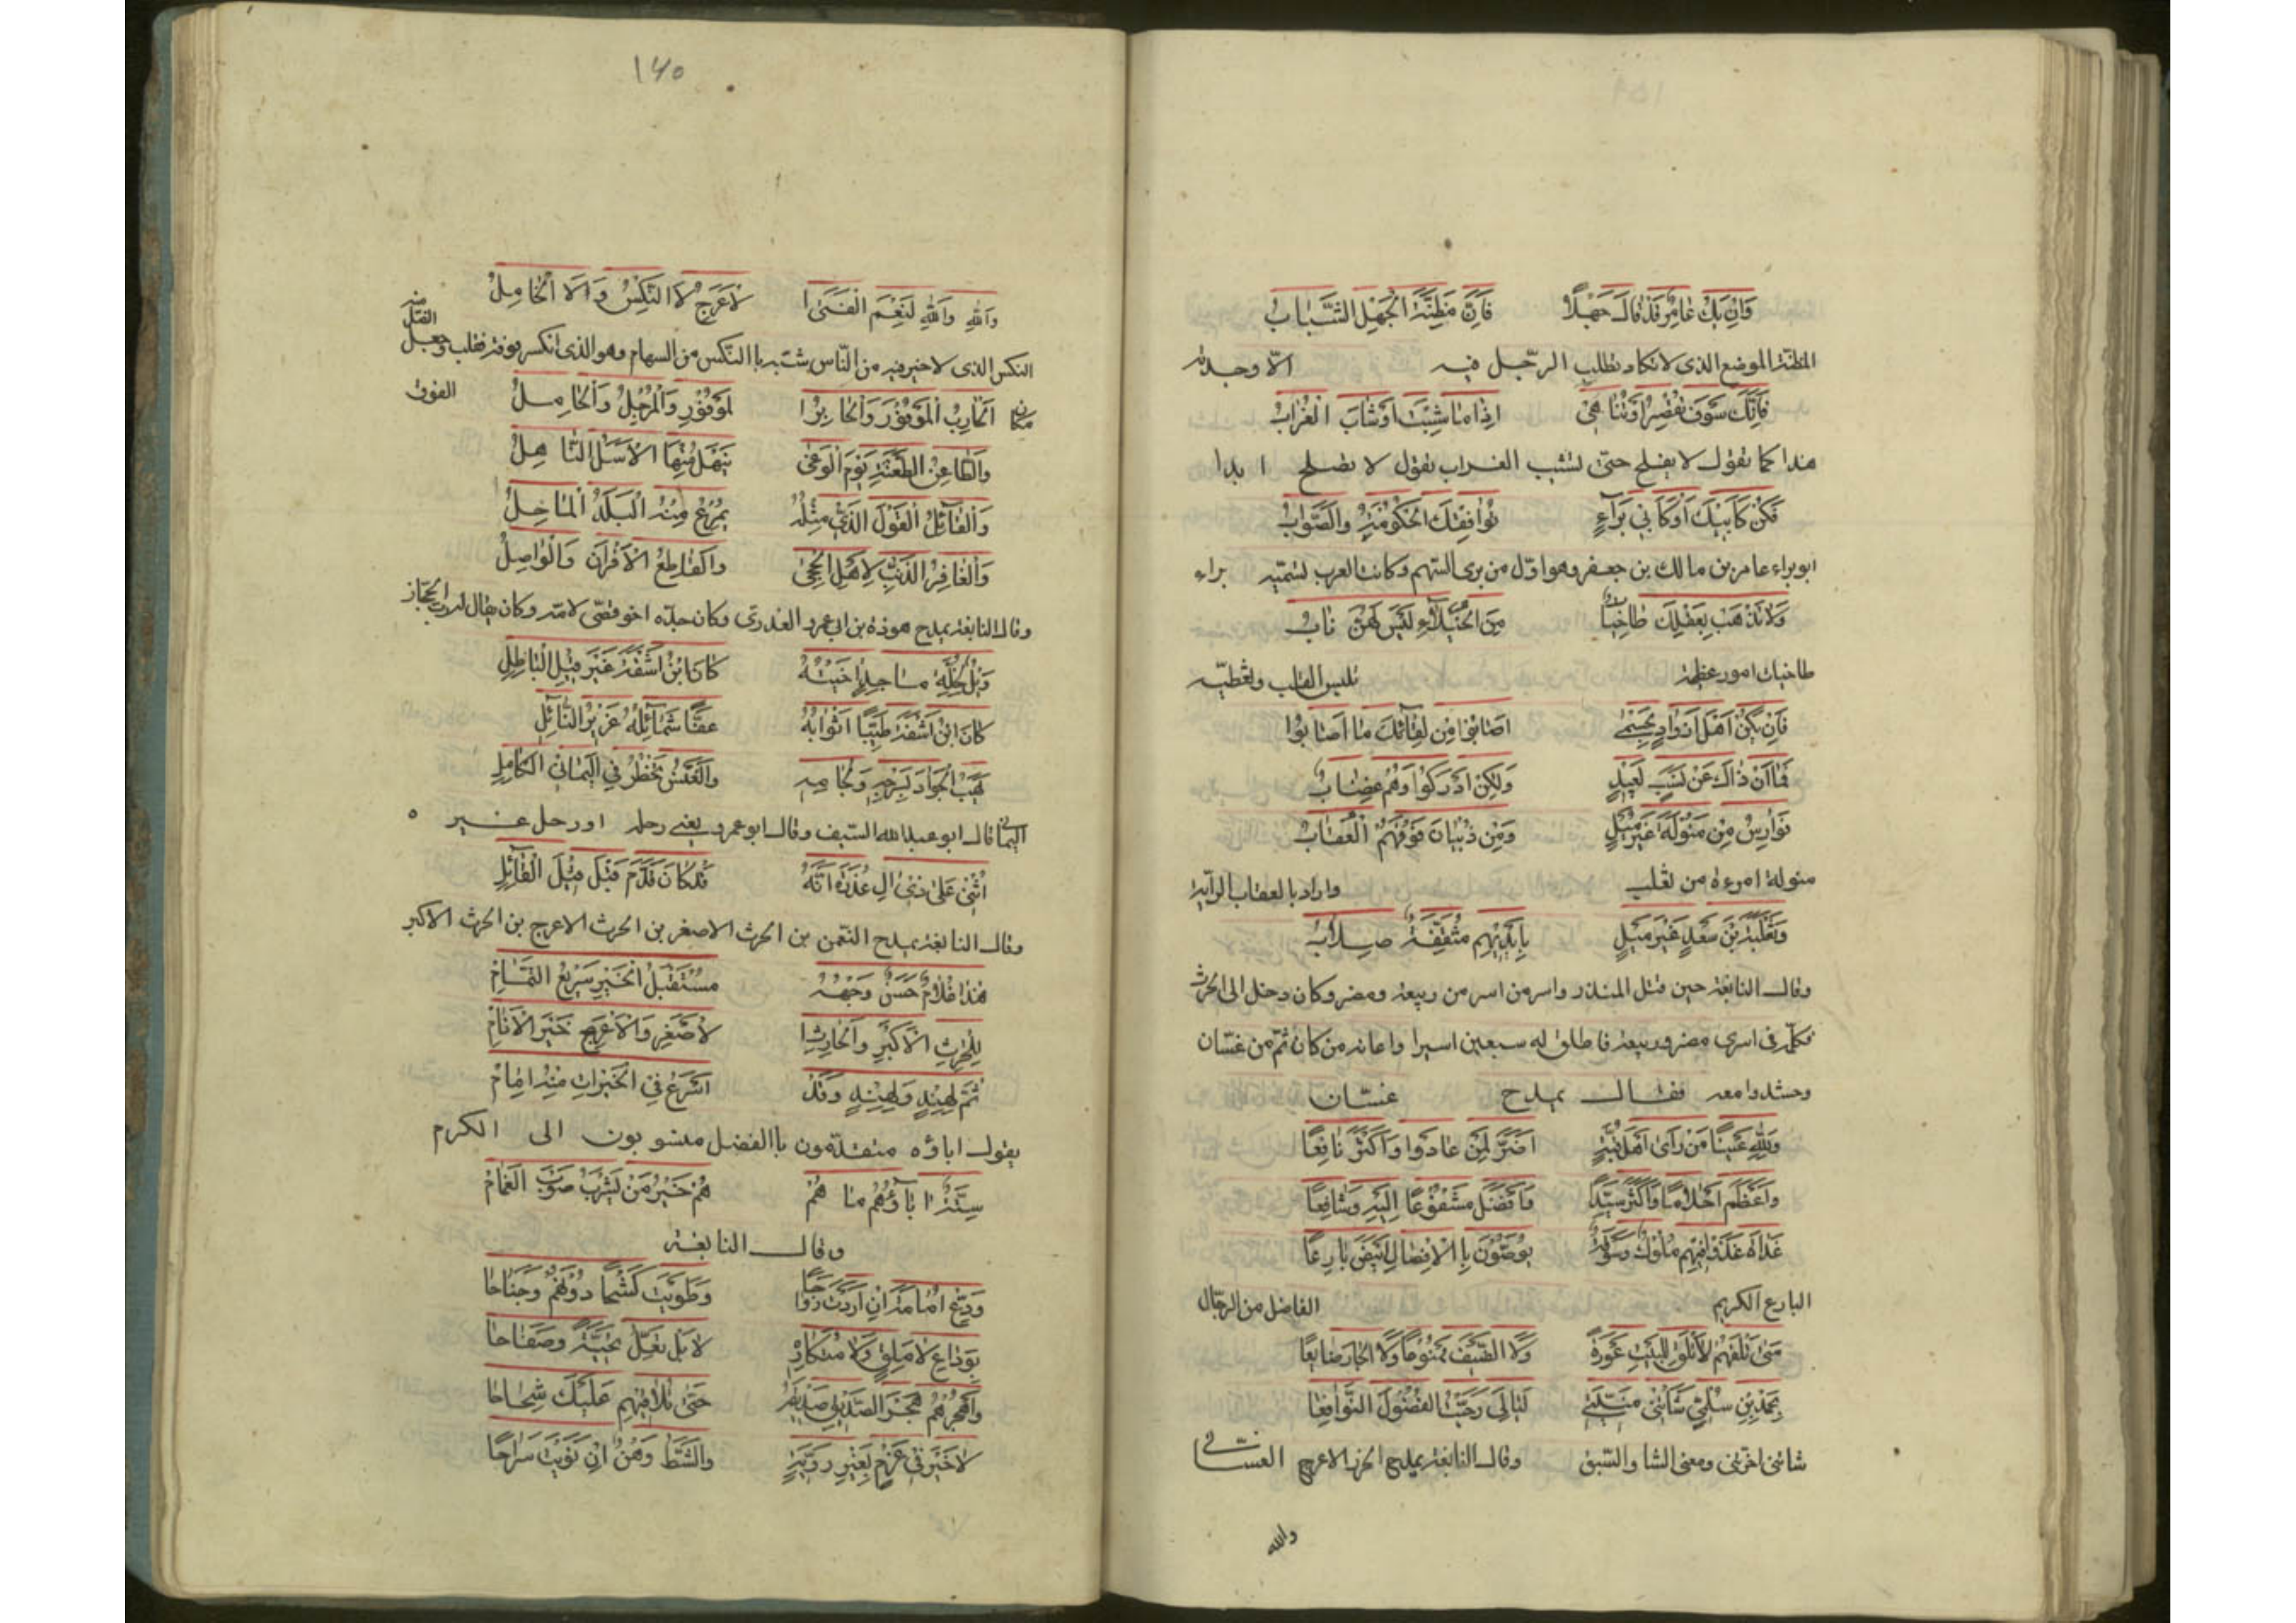 وَاِنْ يَكُ عَامِرٌ قَدْ قَالَ جَهْلًا فَاِنَّ مَظِنَّةَ الْجَهْلِ الشَّبَابُ
المظنّة الموضع الذى لا تكاد تطلب الرّجل فيه الاّ وجدته
فَاِنَّكَ سَوْفَ تُقْصِرُ اَوْ تَنَاهَى اِذَا مَا شِبْتَ اَوْ شَابَ الْغُرَابُ
هذا كما تقول لا يفلح حتى يشيب الغراب يقول لا يصلح ابدا
فَكُنْ كَاَبِيكَ اَوْ كَاَبِي بَرَآءٍ تُوَافِقْكَ الْحُكُومَةُ وَالصَّوَابُ
ابو براء عامر بن مالك بن جعفر وهو اوّل من يرى السّهم وكانت العرب تسمّيه براء
وَلَا تَذْهَبْ بِعَقْلِكَ طَاخِيَاتٌ مِنَ الْخُيَلَآءِ لَيْسَ لَهُنَّ بَابُ
طاخيات امور عظيمة تلبس القلب وتغطّيه
فَاِنْ تَكُنْ اَهْلَ اَذْوَادٍ بِحِسْمَى اَصَابُوْا مِنْ لِقَآئِكَ مَا اَصَابُوا
فَمَا اِنْ ذَاكَ عَنْ نَسَبٍ بَعِيدٍ وَلَكِنْ اَدْرَكُوْا وَهُمْ غِضَابُ
فَوَارِسُ مِنْ مَنُوْلَةَ غَيْرُ مِيْلٍ وَمِنْ ذُبْيَانَ فَوْقَهُمُ الْعُقَابُ
منولة امرءة من تغلب واراد بالعقاب الراية
وَثَعْلَبَةُ بْنُ سَعْدٍ غَيْرُ مِيْلٍ بِاَيْدِيْهِمْ مُثَقَّفَةٌ صِلَابُ
وقال النابغة حين قتل المنذر واسر من اسر من ربيعة ومضر وكان دخل الى الحرث
فكلّمه فى اسرى مضر وربيعة فاطلق له سبعين اسيرا واعانه من كان ثمّ من غسّان
وحشدوا معه فقال يمدح غسّان
وَلِلّٰهِ عَيْنًا مَنْ رَاَى اَهْلَ قُبَّةٍ اَضَرَّ لِمَنْ عَادَوْا وَاَكْثَرَ نَافِعًا
وَاَعْظَمَ اَحْلَامًا وَاَكْثَرَ سَيِّدًا وَاَفْضَلَ مَشْفُوْعًا اِلَيْهِ وَشَافِعًا
غَدَاةَ غَدَوْا فِيْهِمْ مُلُوْكٌ وَسُوْقَةٌ يُوَصُّوْنَ بِالْاَفْضَالِ اَبْيَضَ بَارِعًا
البارع الكريم الفاضل من الرجّال
مَتَى تَلْقَهُمْ لَا تَلْقَ لِلْبَيْتِ عَوْرَةً وَلَا الضَّيْفَ مَمْنُوْعًا وَلَا الْجَارَ ضَايِعًا
شاتنى اخرتنى ومعنى الشا والسّبق وقال النابغة يمدح الحرث الاعرج الغسّانى
والله
١٤٥
وَاللّٰهِ وَاللّٰهِ لَنِعْمَ الْفَتَى ا لْاَعْرَجُ لَا النِّكْسُ وَلَا الْخَامِلُ
النكس الذى لا خير فيه من النّاس شبّه باالنكس من السهام وهو الذى انكسر فوقه فقلب وجعل
اَلْحَارِبُ الْمَوْفُوْرَ وَالْحَابِرُ ا لْمَوْفُوْرِ وَالْمُرْجِلُ وَالْحَامِلُ الفوق
وَالطَّاعِنُ الطَّعْنَةَ يَوْمَ الْوَغَى يَنْهَلُ مِنْهَا الْاَسَلُ النَّاهِلُ
وَالْقَآئِلُ الْقَوْلَ الَّذِي مِثْلُهُ يُمْرِعُ مِنْهُ الْبَلَدُ الْمَاحِلُ
وَالْغَافِرُ الذَّنْبَ لِاَهْلِ الْحِجَى وَالْقَاطِعُ الْاَقْرَانَ وَالْوَاصِلُ
وقال النابغة يمدح هوذة بن ابى عمرو العذرى وكان جدّه اخو قصىّ لامّه وكان يقال له رب الحجاز
كَانَ ابْنُ اَشْفَةَ طَيِّبًا اَثْوَابُهُ عَفًّا شَمَآئِلُهُ غَزِيْرَ النَّآئِلِ
يَهَبُ الْجَوَادَ بِسَرْجِهِ وَلِجَامِهِ وَالْعَنْسَ تَخْطُرُ فِي الْيَمَانِي الْكَامِلِ
اليمانى قال ابو عبدالله السّيف وقال ابو عمرو يعنى رحله او رحل عنس ٥
اُثْنِي عَلَى ذِي الِ عُذْرَةَ اَنَّهُ قَدْ كَانَ قَدَّمَ قَبْلَ قِيْلِ الْقَآئِلِ
وقال النابغة يمدح النعمن بن الحرث الاصغر بن الحرث الاعرج بن الحرث الاكبر
هَذَا غُلَامٌ حَسَنٌ وَجْهُهُ مُسْتَقْبِلُ الْخَيْرِ سَرِيْعُ التَّمَامْ
لِلْحٰرِثِ الْاَكْبَرِ وَالْحَارِثِ ا لْاَصْغَرِ وَالْاَعْرَجِ خَيْرِ الْاَنَامْ
ثُمَّ لِهِنْدٍ وَلِهِنْدٍ وَقَدْ اَسْرَعَ فِي الْخَيْرَاتِ مِنْهُ اِمَامْ
يقول اباؤه متقدّمون باالفضل منسوبون الى الكرم
سِتَّةُ اٰبَآؤُهُمْ مَا هُمْ هُمْ خَيْرُ مَنْ يَشْرَبُ صَوْبَ الْغَمَامْ
وقال النابغة
وَدِّعْ اُمَامَةَ اِنْ اَرَدْتَ رَوَاحًا وَطَوَيْتَ كَشْحًا دُوْنَهُمْ وَجَنَاحَا
بِوَدَاعِ لَا مَلِقٍ وَلَا مُتَكَارِهٍ لَا بَلْ تَعِلُّ تَحِيَّةً وَصِفَاحَا
وَاهْجُرْهُمْ هَجْرَ الصَّدِيْقِ صَدِيْقَهُ حَتَّى تُلَاقِيَهُمْ عَلَيْكَ شِحَاحَا
لَا خَيْرَ فِي عَزْمٍ بِغَيْرِ رَوِيَّةٍ وَالشَّكُّ وَهْنٌ اِنْ نَوَيْتَ سَرَاحَا